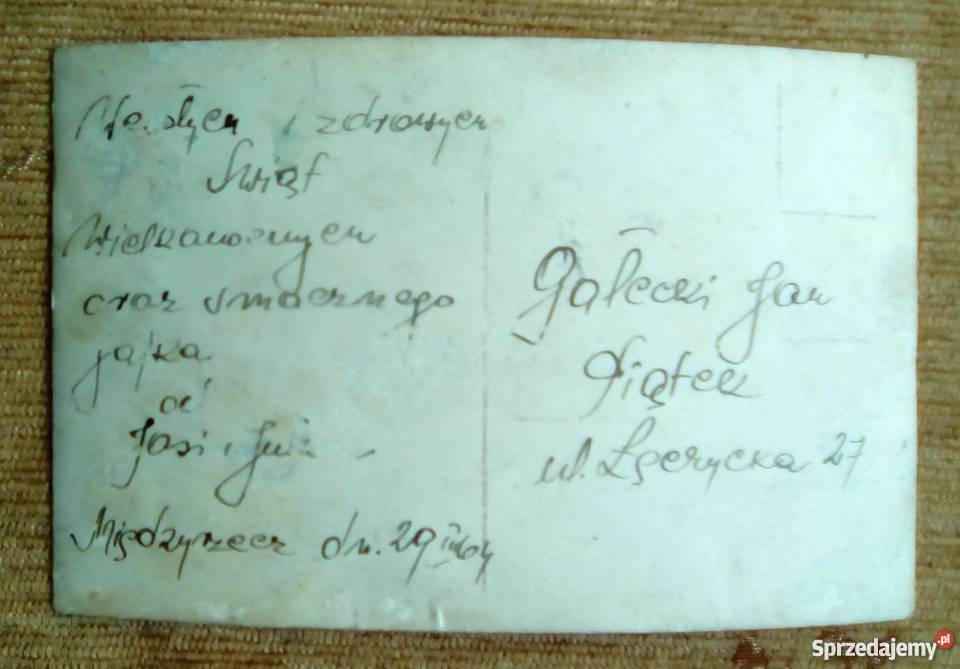 Wesołych i zdrowych
Świąt
Wielkanocnych
oraz smacznego
jajka
od
Jasi i
Międzyrzecz dn. 29
Gałecki Jan
Piątek
ul. Łęczycka 27
Sprzedajemy.pl